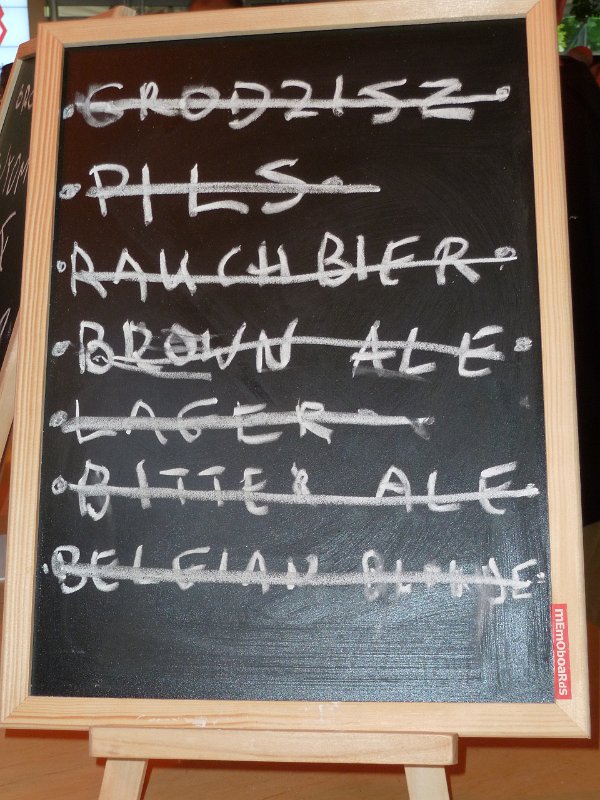 GRODZISZ
PILS
RAUCHBIER
BROWN ALE
LAGER
BITTER ALE
BELGIAN BLONDE
mEmOboaRdS